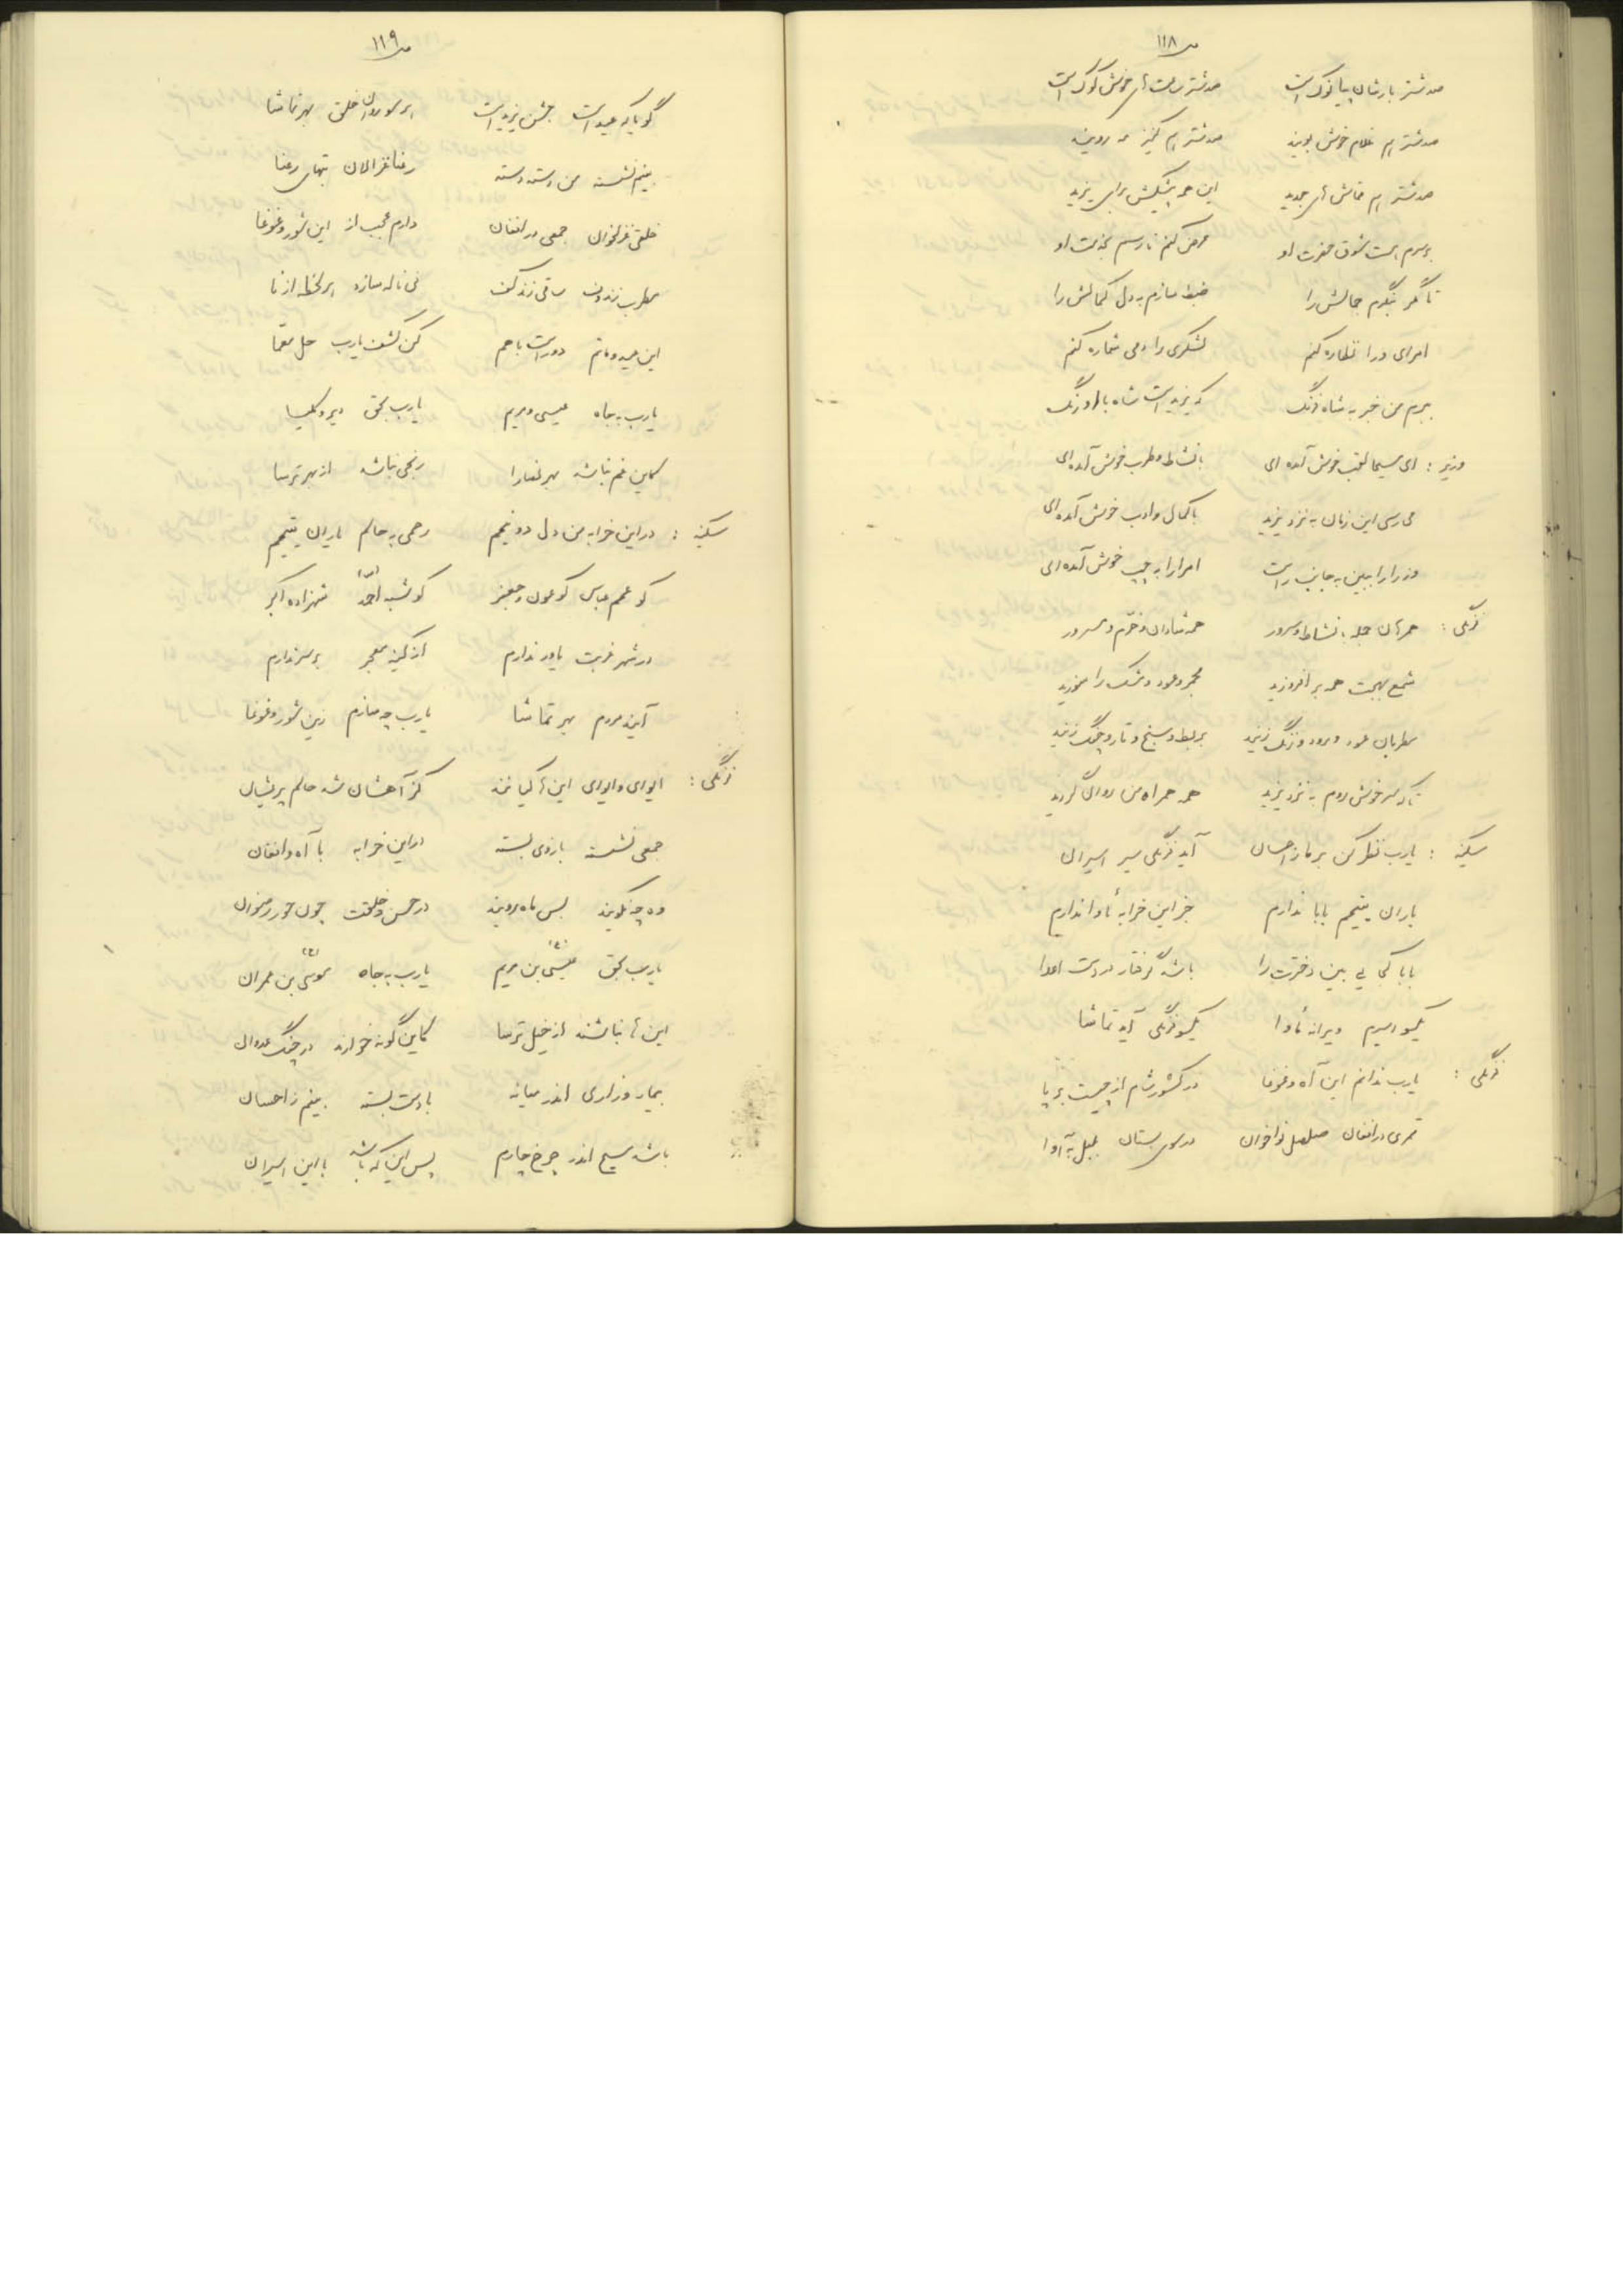 ص ۱۱۸
صد شتر بارشان پیانوک است صد شتر ساعت های خوش کوک است
صد شتر هم غلام خوش بویند صد شتر هم کنیز مه رویند
صد شتر هم قماش های جدید این همه پیشکش برای یزید
بر سرم هست شوق حضرت او عرض کنم تا رسم بخدمت او
تا مگر بنگرم جمالش را ضبط سازم به دل کمالش را
امرای ورا نظاره کنم لشکری را دمی شماره کنم
ببرم من خبر به شاه فرنگ که یزید است شاه با اورنگ
وزیر : ای مسیحا لقب خوش آمده ای با نشاط و طرب خوش آمده ای
می رسی این زمان به نزد یزید با کمال و ادب خوش آمده ای
وزرا را ببین به جانب راست امرا را به چپ خوش آمده ای
فرنگی : همرهان جمله با نشاط و سرور همه شادان و خرّم و مسرور
شمع بهجت همه بر افروزید مجمر و عود و مشک را سوزید
مطربان عود و سرود و زنگ زنید بربط و سنج و تار و چنگ زنید
تا که سرخوش روم به نزد یزید همه همراه من روان گردید
سکینه : یارب نظر کن بر ما ز احسان آید فرنگی سیر اسیران
یاران یتیمم بابا ندارم جز این خرابه مأوا ندارم
بابا کجایی بین دخترت را باشد گرفتار در دست اعدا
یکسو اسیرم ویرانه مأوا یکسو فرنگی آید تماشا
فرنگی : یارب ندانم این آه و غوغا در کشور شام از چیست بر پا
قمری در افغان صلصل نواخوان در سروستان بلبل به آوا
ص ۱۱۹
گویا که عید است جشن یزید است هر سو روان خلق بهر تماشا
بینم نشسته من دسته دسته رعنا غزالان بتهای رعنا
خلقی غزلخوان جمعی در افغان دارم عجب از این شور و غوغا
مطرب زند دف ساقی زند کف نی ناله سازد هر لحظه از نا
این عید و ماتم دور است با هم کن کشف یارب حل معما
یارب به جاه عیسی و مریم یارب بحق دیر و کلیسا
کاین غم نباشد بهر نصارا رنجی نباشد از بهر ترسا
سکینه : در این خرابه من دل دو نیمم رحمی به حالم یاران یتیمم
کو عمم عباس کو عون و جعفر کو شبه احمد (ص) شهزاده اکبر
در شهر غربت یاور ندارم از کینه معجر بر سر ندارم
آیند مردم بهر تماشا یارب چه سازم زین شور و غوغا
فرنگی : ایوای و ایوای این ها کیانند کز آهشان شد حالم پریشان
جمعی نشسته بازوی بسته در این خرابه با آه و افغان
وه چه نکویند بس ماه رویند در حسن و خلقت چون حور و رضوان
یارب بحق عیسی (ع) بن مریم یارب به جاه موسی (ع) بن عمران
این ها نباشند از خیل ترسا کاین گونه خوارند در چنگ عدوان
بیمار و زاری اندر میانه با دست بسته بینم ز احسان
باشد مسیح اندر چرخ چارم پس این که باشد با این اسیران